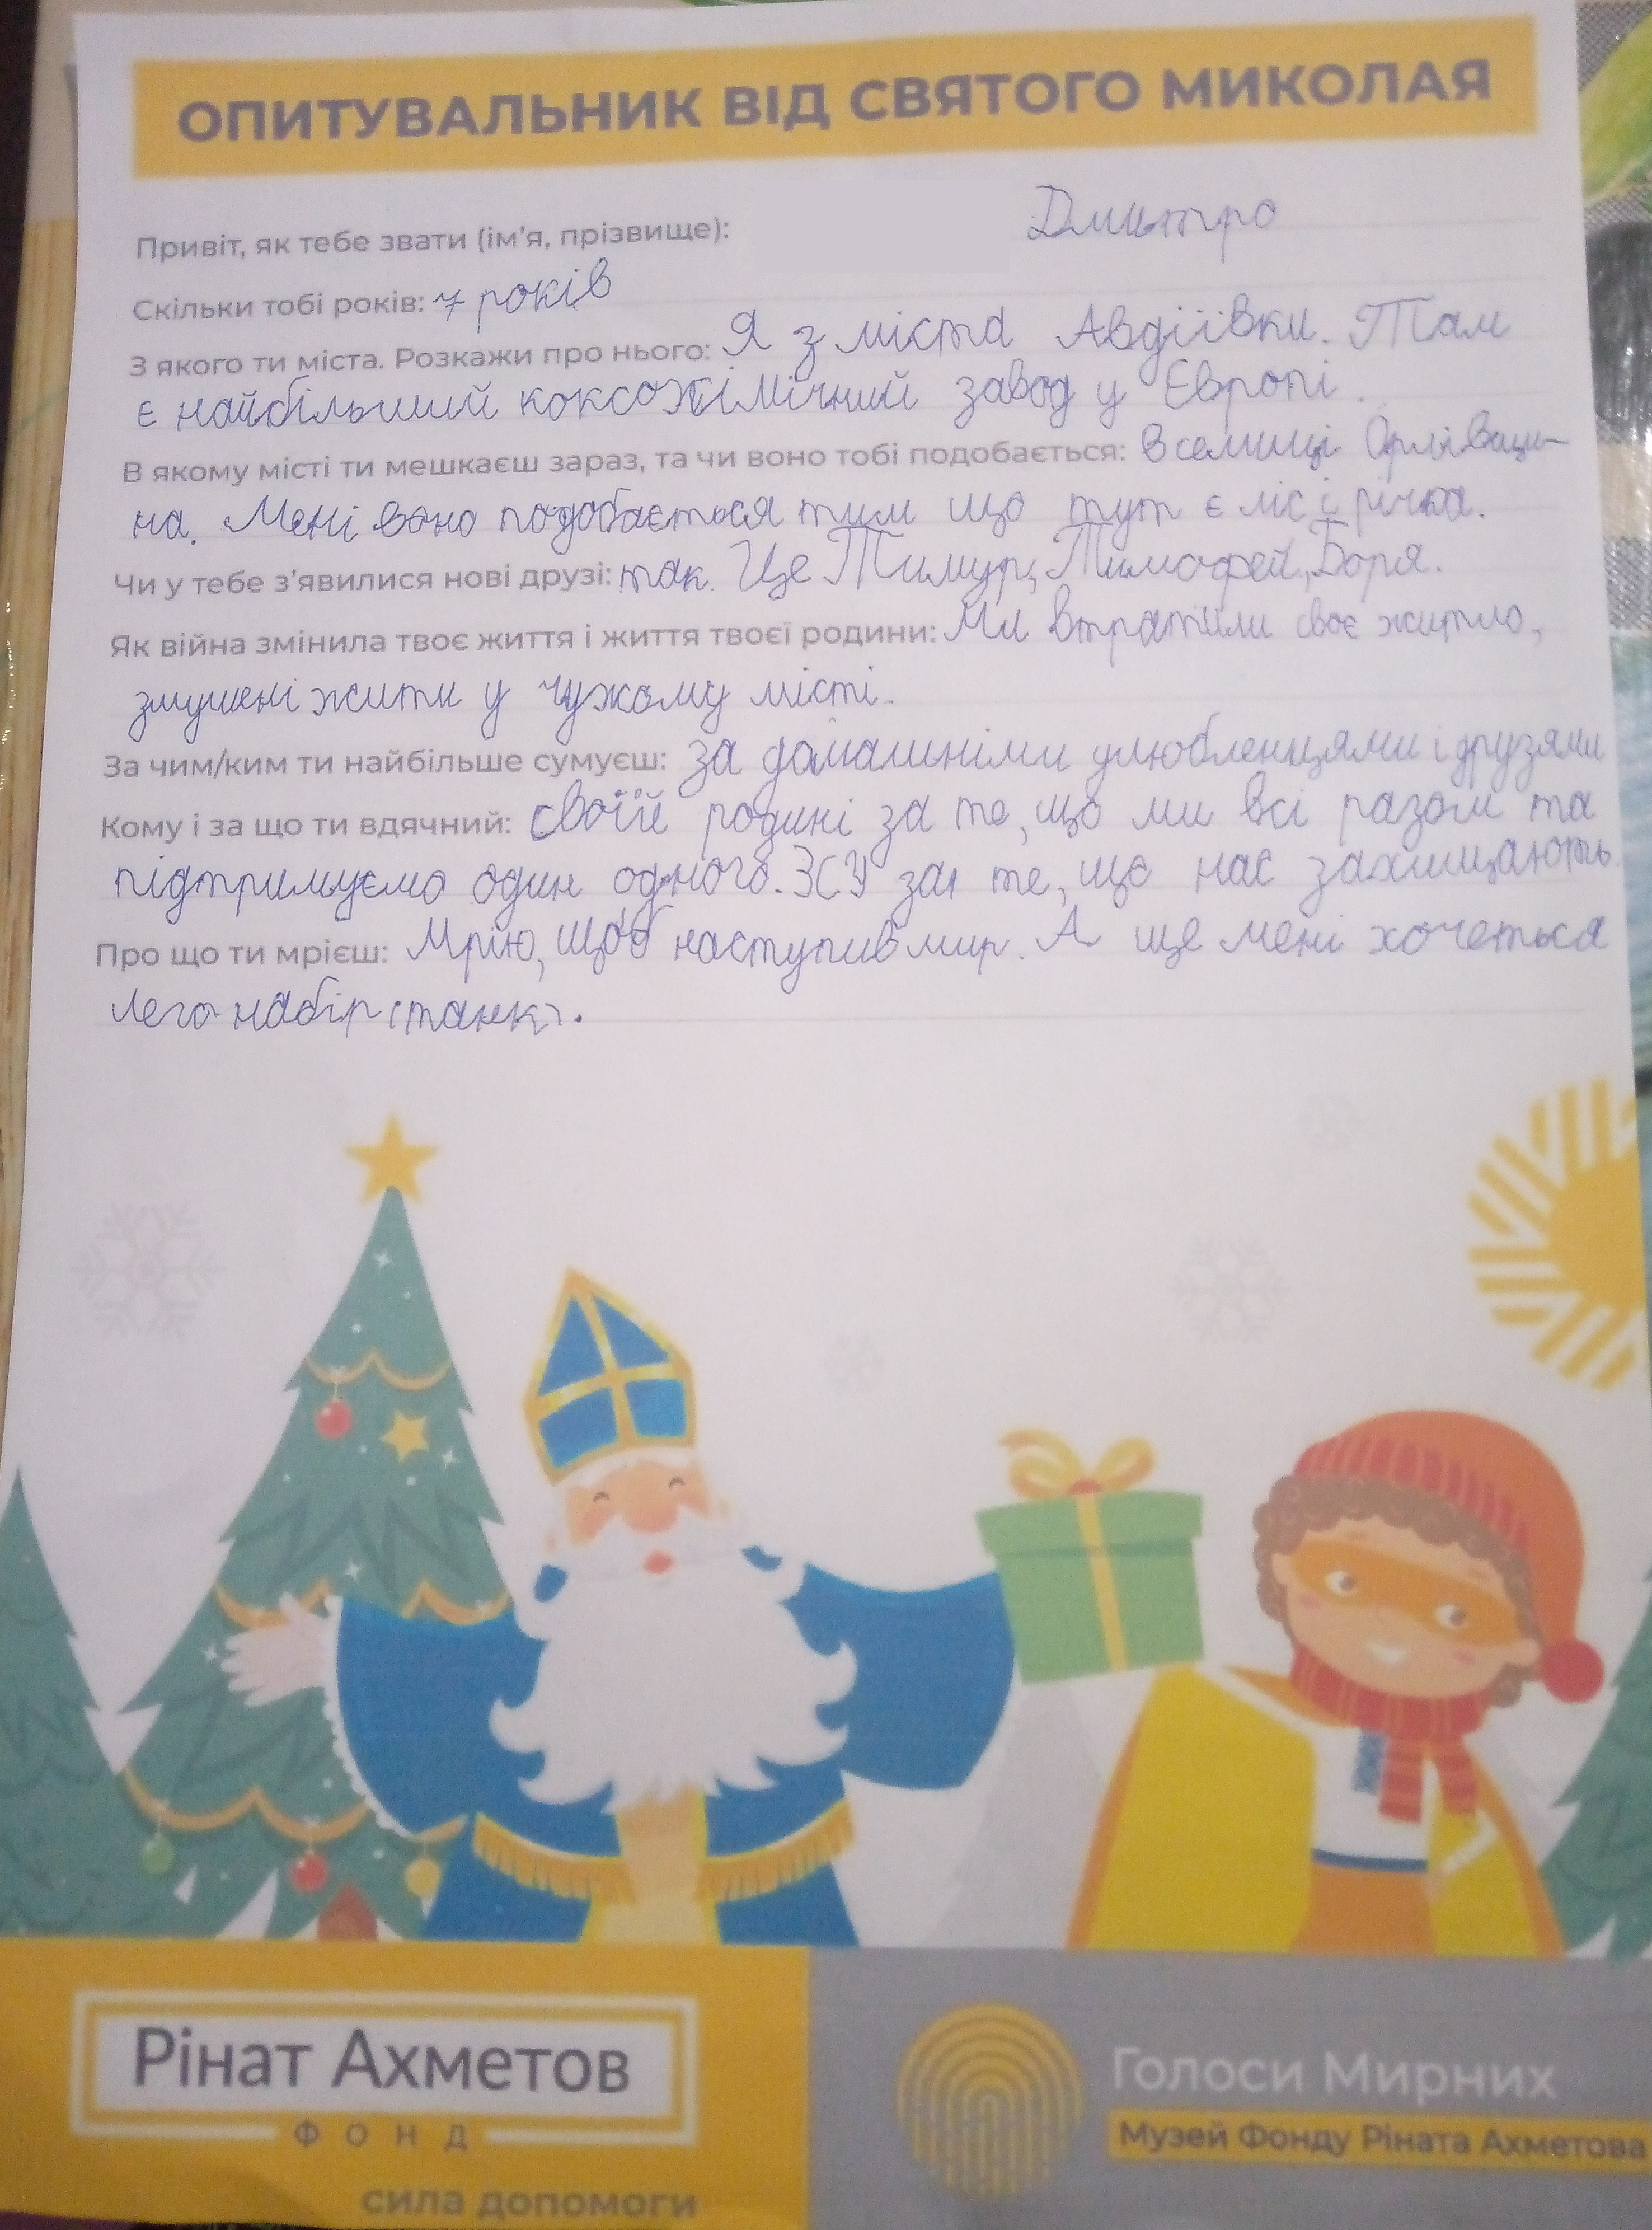 ОПИТУВАЛЬНИК ВІД СВЯТОГО МИКОЛАЯ
Привіт, як тебе звати (ім'я, прізвище): Дмитро
Скільки тобі років: 7 років
З якого ти міста. Розкажи про нього: Я з міста Авдіївки. Там
є найбільший коксохімічний завод у Європі.
В якому місті ти мешкаєш зараз, та чи воно тобі подобається: В селищі Орлівщи-
на. Мені воно подобається тим що тут є ліс і річка.
Чи у тебе з'явилися нові друзі: так. Це Тимур, Тимофей, Боря.
Як війна змінила твоє життя і життя твоєї родини: Ми втратили своє житло,
змушені жити у чужому місті.
За чим/ким ти найбільше сумуєш: за домашніми улюбленцями і друзями
Кому і за що ти вдячний: своїй родині за те, що ми всі разом та
підтримуємо один одного. ЗСУ за те, що нас захищають.
Про що ти мрієш: Мрію, щоб наступив мир. А ще мені хочеться
лего набір (танк).
Рінат Ахметов
ФОНД
сила допомоги
Голоси Мирних
Музей Фонду Ріната Ахметова